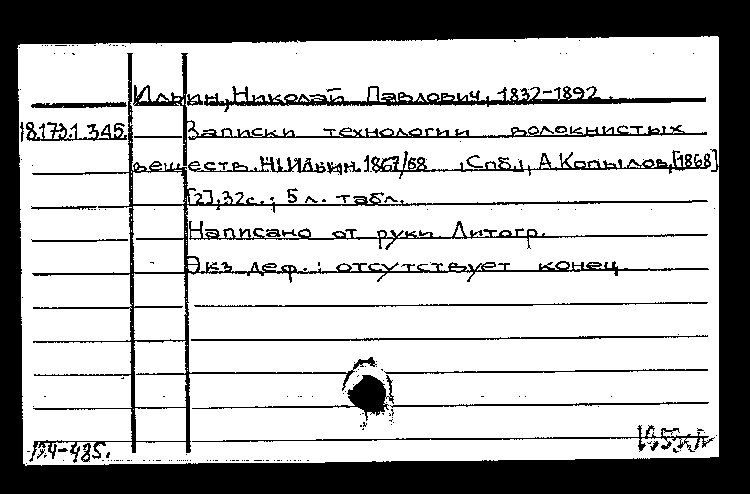 Ильин, Николай Павлович, 1832-1892.
18.173.1.345. Записки технологии волокнистых
веществ. Н. Ильин. 1867/68 [Спб], А. Копылов, [1868]
[2], 32 с.; 5 л. табл.
Написано от руки Литогр.
Экз. деф.: отсутствует конец.